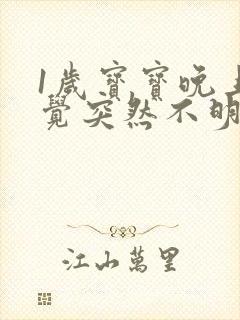 1歲寶寶晚上
覺突然不明
江山萬里